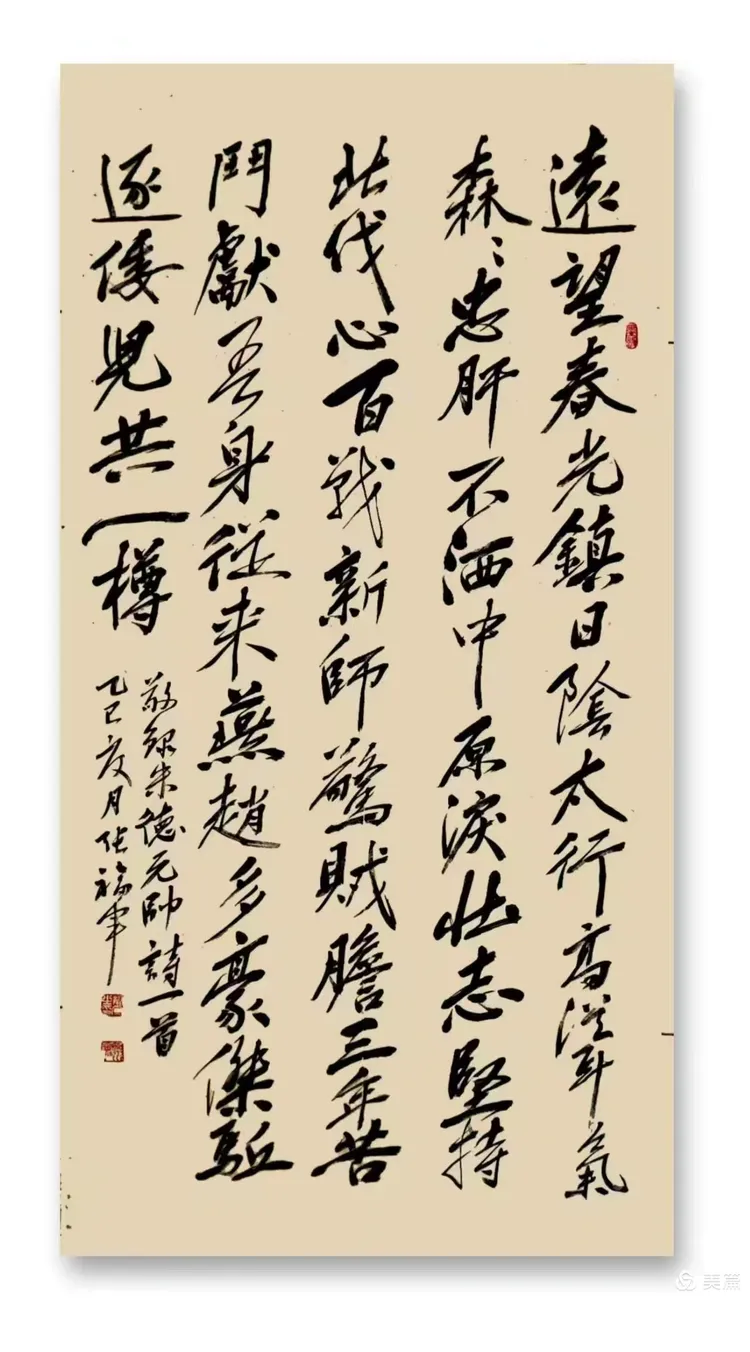 遠望春光鎮日陰太行高聳氣
森〻忠肝不洒中原淚壯志堅持
北伐心百戰新師驚賊膽三年苦
鬥獻吾身從来燕趙多豪傑駈
逐倭兒共一樽
敬録朱德元帥詩一首
乙巳夏月张福军
美篇